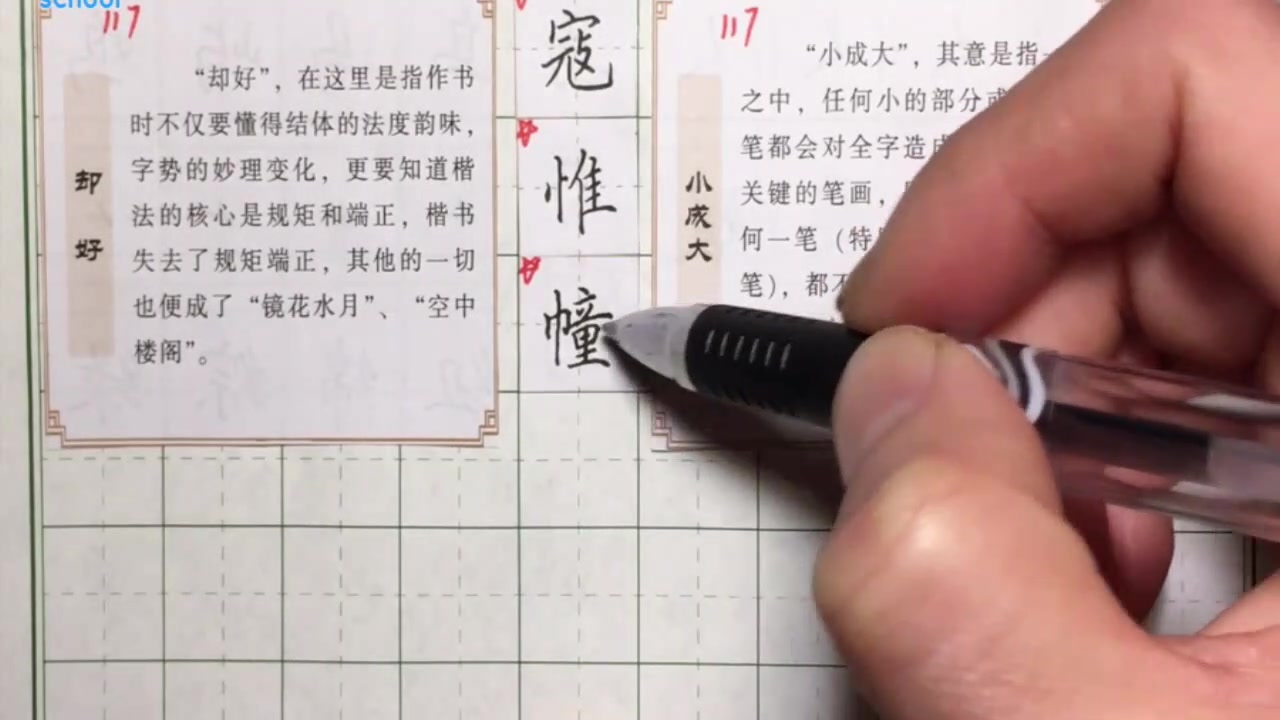 school
117
却好
“却好”，在这里是指作书
时不仅要懂得结体的法度韵味，
字势的妙理变化，更要知道楷
法的核心是规矩和端正，楷书
失去了规矩端正，其他的一切
也便成了“镜花水月”、“空中
楼阁”。
寇
惟
幢
117
小成大
“小成大”，其意是指一
之中，任何小的部分或
笔都会对全字造成
关键的笔画，
何一笔（特
笔），都不